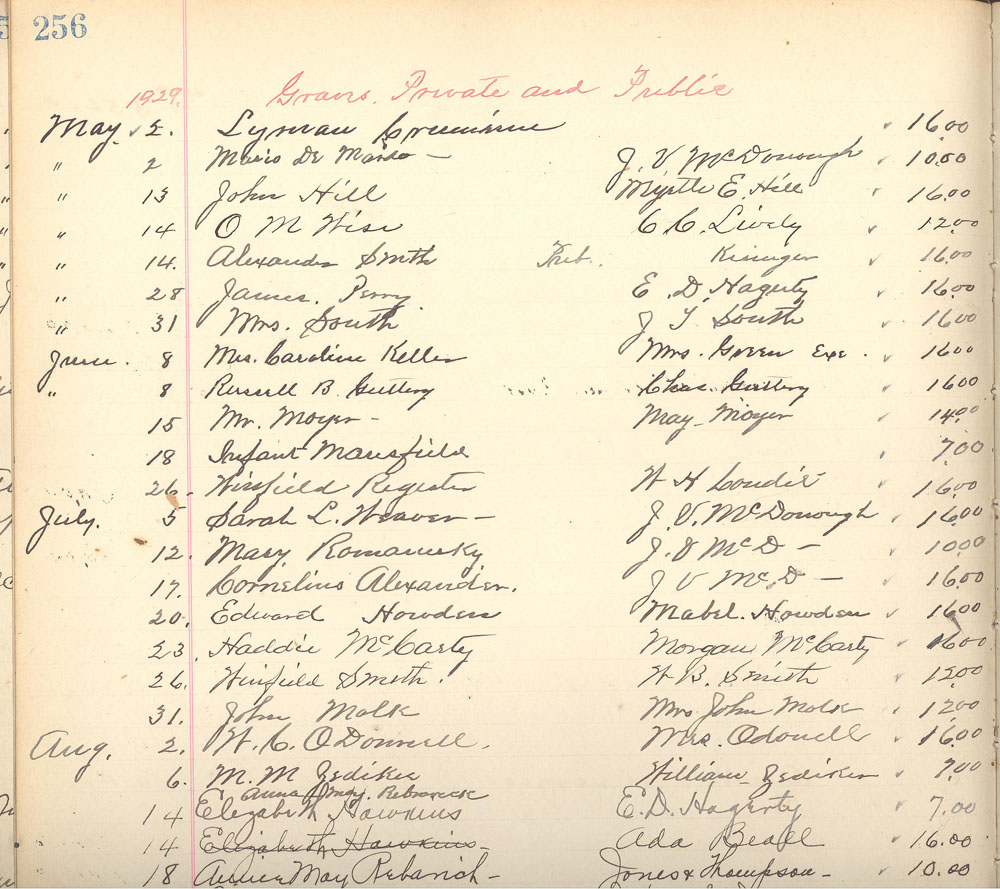 256
1929. Graves. Private and Public
May. 2. Lyman 16.00
" 2 Mario De Maiso - J. V McDonough 10.00
" 13 John Hill Myrtle E. Hill 16.00
" 14 O M Wise C C. Lively 12.00
" 14. Alexander Smith Pub. Kisinger 16.00
" 28 James. Perry E. D. Hagerty 16.00
" 31 Mrs. South J T South 16.00
June. 8 Mrs. Caroline Keller Mrs. Green Exe. 16.00
" 8 Russell B. Guttery Chas. Guttery 16.00
15 Mr. Moyer - May Moyer 14.00
18 Infant Mansfield 7.00
26. Winfield Register W H 16.00
July. 5 Sarah L. Weaver - J. V. McDonough 16.00
12. Mary Romanusky J. V McD - 10.00
17. Cornelius Alexander. J V McD - 16.00
20. Edward Howden Mabel. Howden 16.00
23. Haddie McCarty Morgan McCarty 16.00
26. Winfield Smith. W B. Smith 12.00
31. John Malk Mrs John Malk 12.00
Aug. 2. W. C. O'Donnell. Mrs. Odonell 16.00
6. M. M Zediker William Zediker 7.00
Anna May. Rebarick
14 Elizabeth Hawkins E. D. Hagerty 7.00
14 Elizabeth Hawkins - Ada Beall 16.00
18 Annie May Rebarich - Jones & Thompson - 10.00